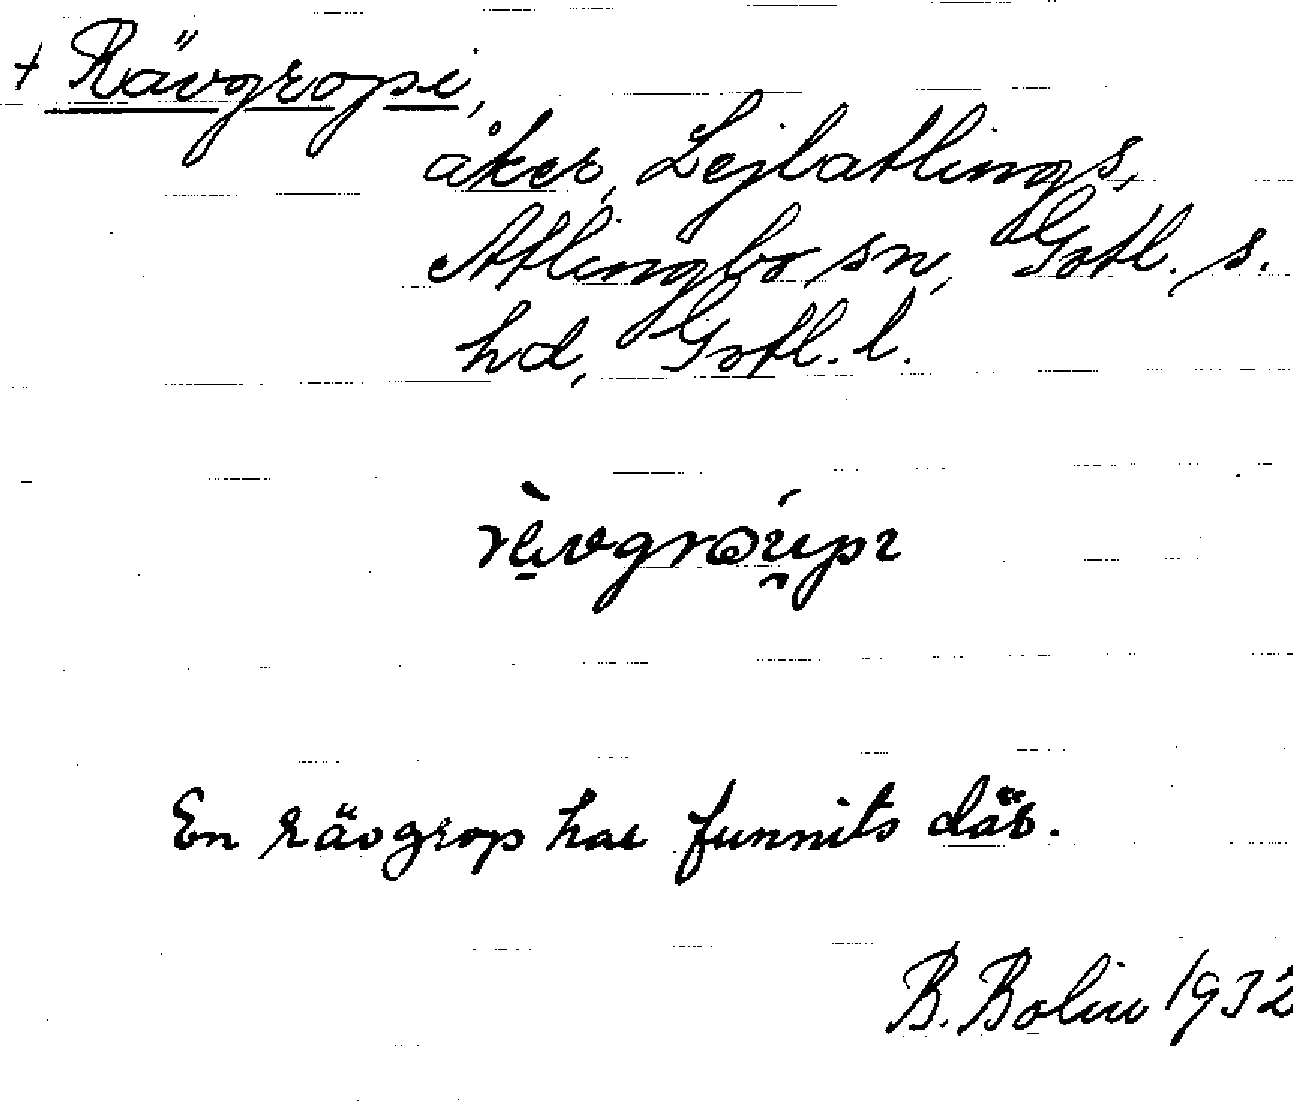 + Rävgropi,
åker, Lejlatlings,
Atlingbo sn, Gotl. s.
hd, Gotl. l.
rävgroupi
En rävgrop har funnits där.
B. Bolin 1932